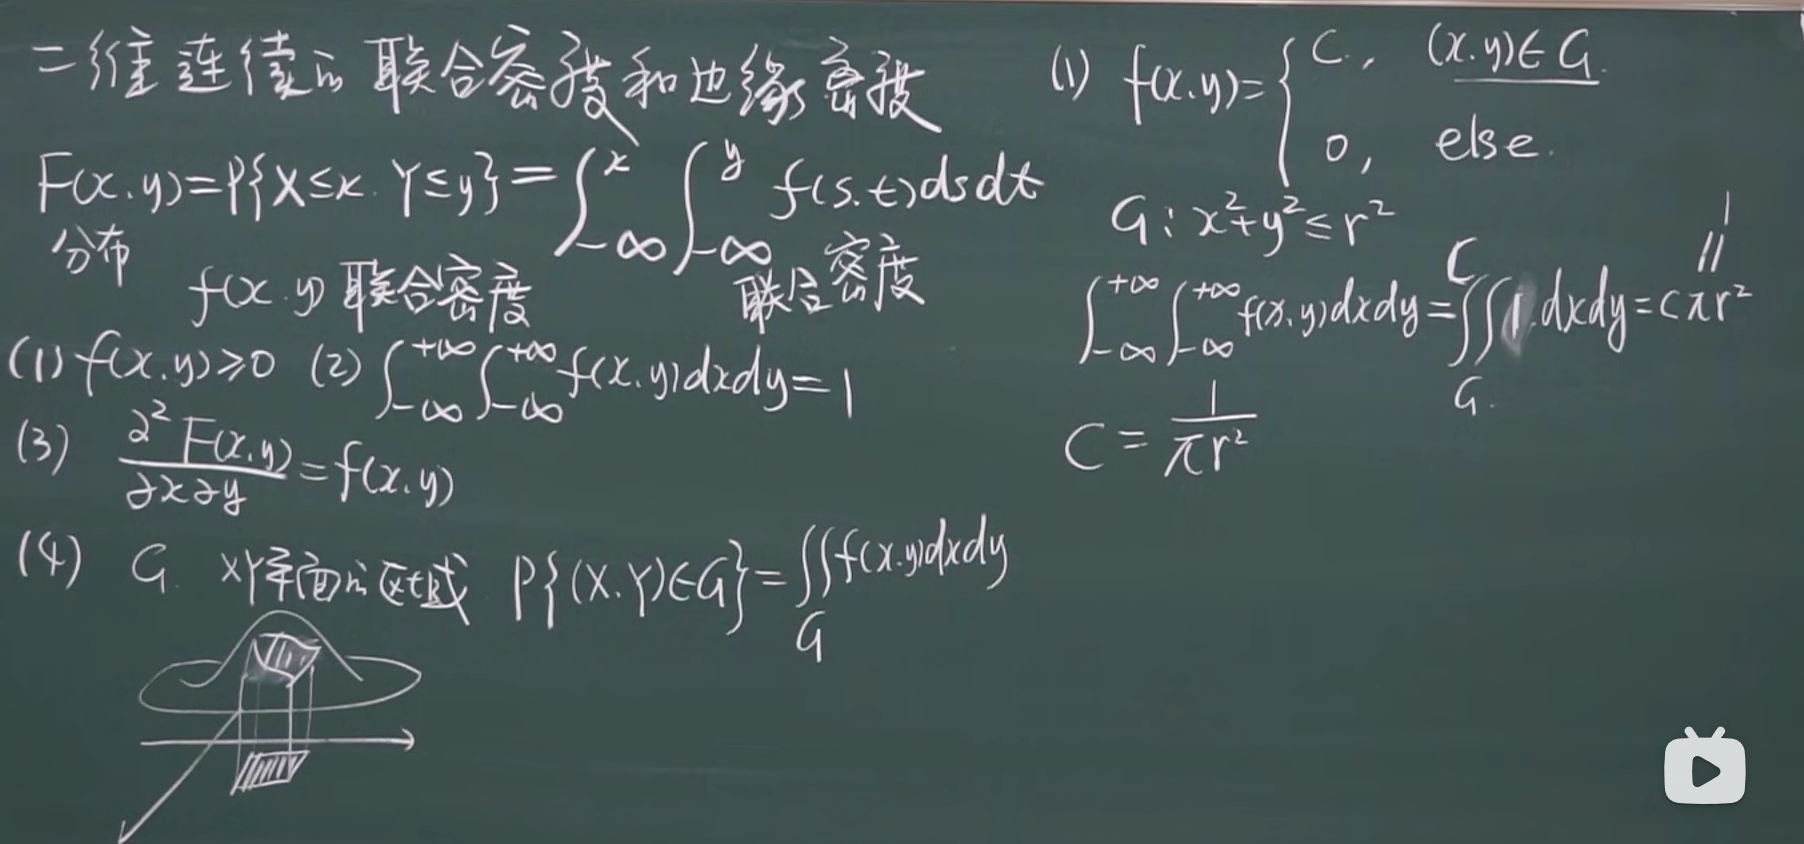 二维连续的联合密度和边缘密度
F(x.y)=P{X≤x. Y≤y}=∫_{-∞}^{x}∫_{-∞}^{y} f(s.t)dsdt
分布 联合密度
f(x.y) 联合密度
(1) f(x.y)≥0 (2) ∫_{-∞}^{+∞}∫_{-∞}^{+∞} f(x.y)dxdy=1
(3) ∂²F(x.y)/∂x∂y = f(x.y)
(4) G. XY平面的区域 P{(X.Y)∈G}=∬_G f(x.y)dxdy
(1) f(x.y)={ C., (x.y)∈G.
0, else.
G: x²+y²≤r²
∫_{-∞}^{+∞}∫_{-∞}^{+∞} f(x.y)dxdy=C∬_G 1.dxdy=cπr²
=
1
C=1/πr²